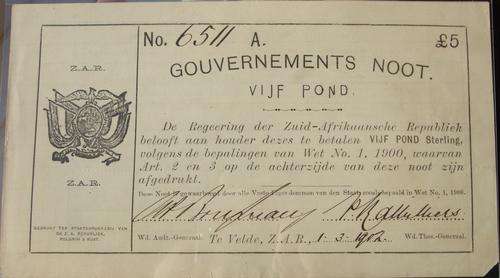 No. 6511 A. £5
GOUVERNEMENTS NOOT.
VIJF POND.
Z.A.R.
De Regeering der Zuid-Afrikaansche Republiek
belooft aan houder dezes te betalen VIJF POND Sterling,
volgens de bepalingen van Wet No. 1, 1900, waarvan
Art. 2 en 3 op de achterzijde van deze noot zijn
afgedrukt.
Z.A.R.
Deze Noot is gewaarborgd door alle Vaste Eigendommen van den Staat zooals bepaald in Wet No. 1, 1900.
GEDRUKT TER STAATSDRUKKERIJ VAN
DE Z. A. REPUBLIEK,
PELGRIMS RUST.
Wd. Audt.-Generaal. Te Velde, Z.A.R., 1-3-1902 Wd. Thes.-Generaal.